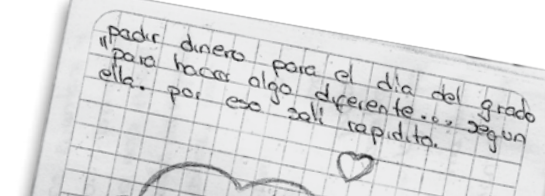 padir dinero para el día del grado
"para hacer algo diferente... según
ella. por eso salí rapidito.